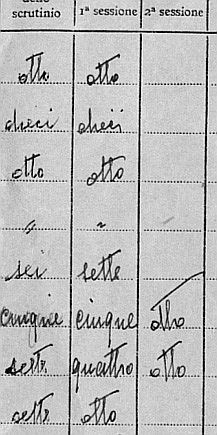 dello
scrutinio 1ª sessione 2ª sessione
otto otto
dieci dieci
otto otto
" "
sei sette
cinque cinque otto
sette quattro otto
sette otto